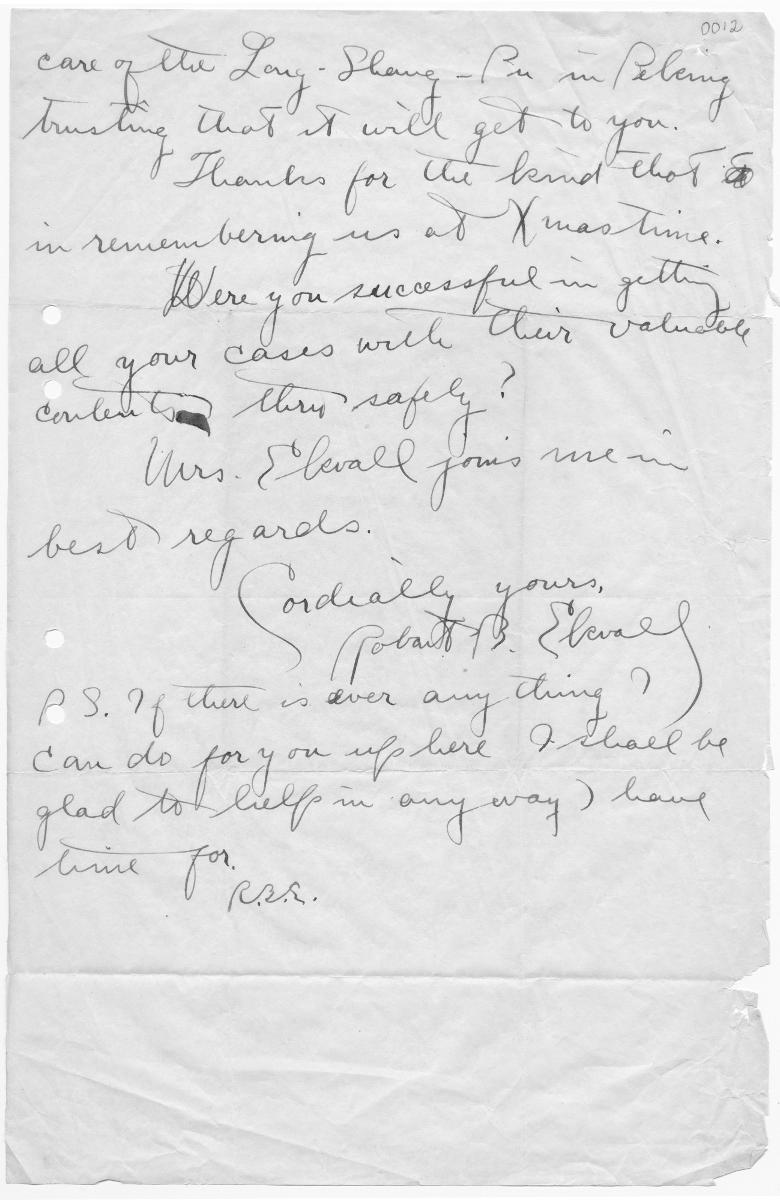 0012
care of the Long-Shang-Pu in Peking
trusting that it will get to you.
Thanks for the kind that
in remembering us at Xmas time.
Were you successful in getting
all your cases with their valuable
contents thru safely?
Mrs. Ekvall joins me in
best regards.
Cordially yours,
Robert B. Ekvall
P.S. If there is ever any thing I
can do for you up here I shall be
glad to help in any way I have
time for.
R.B.E.